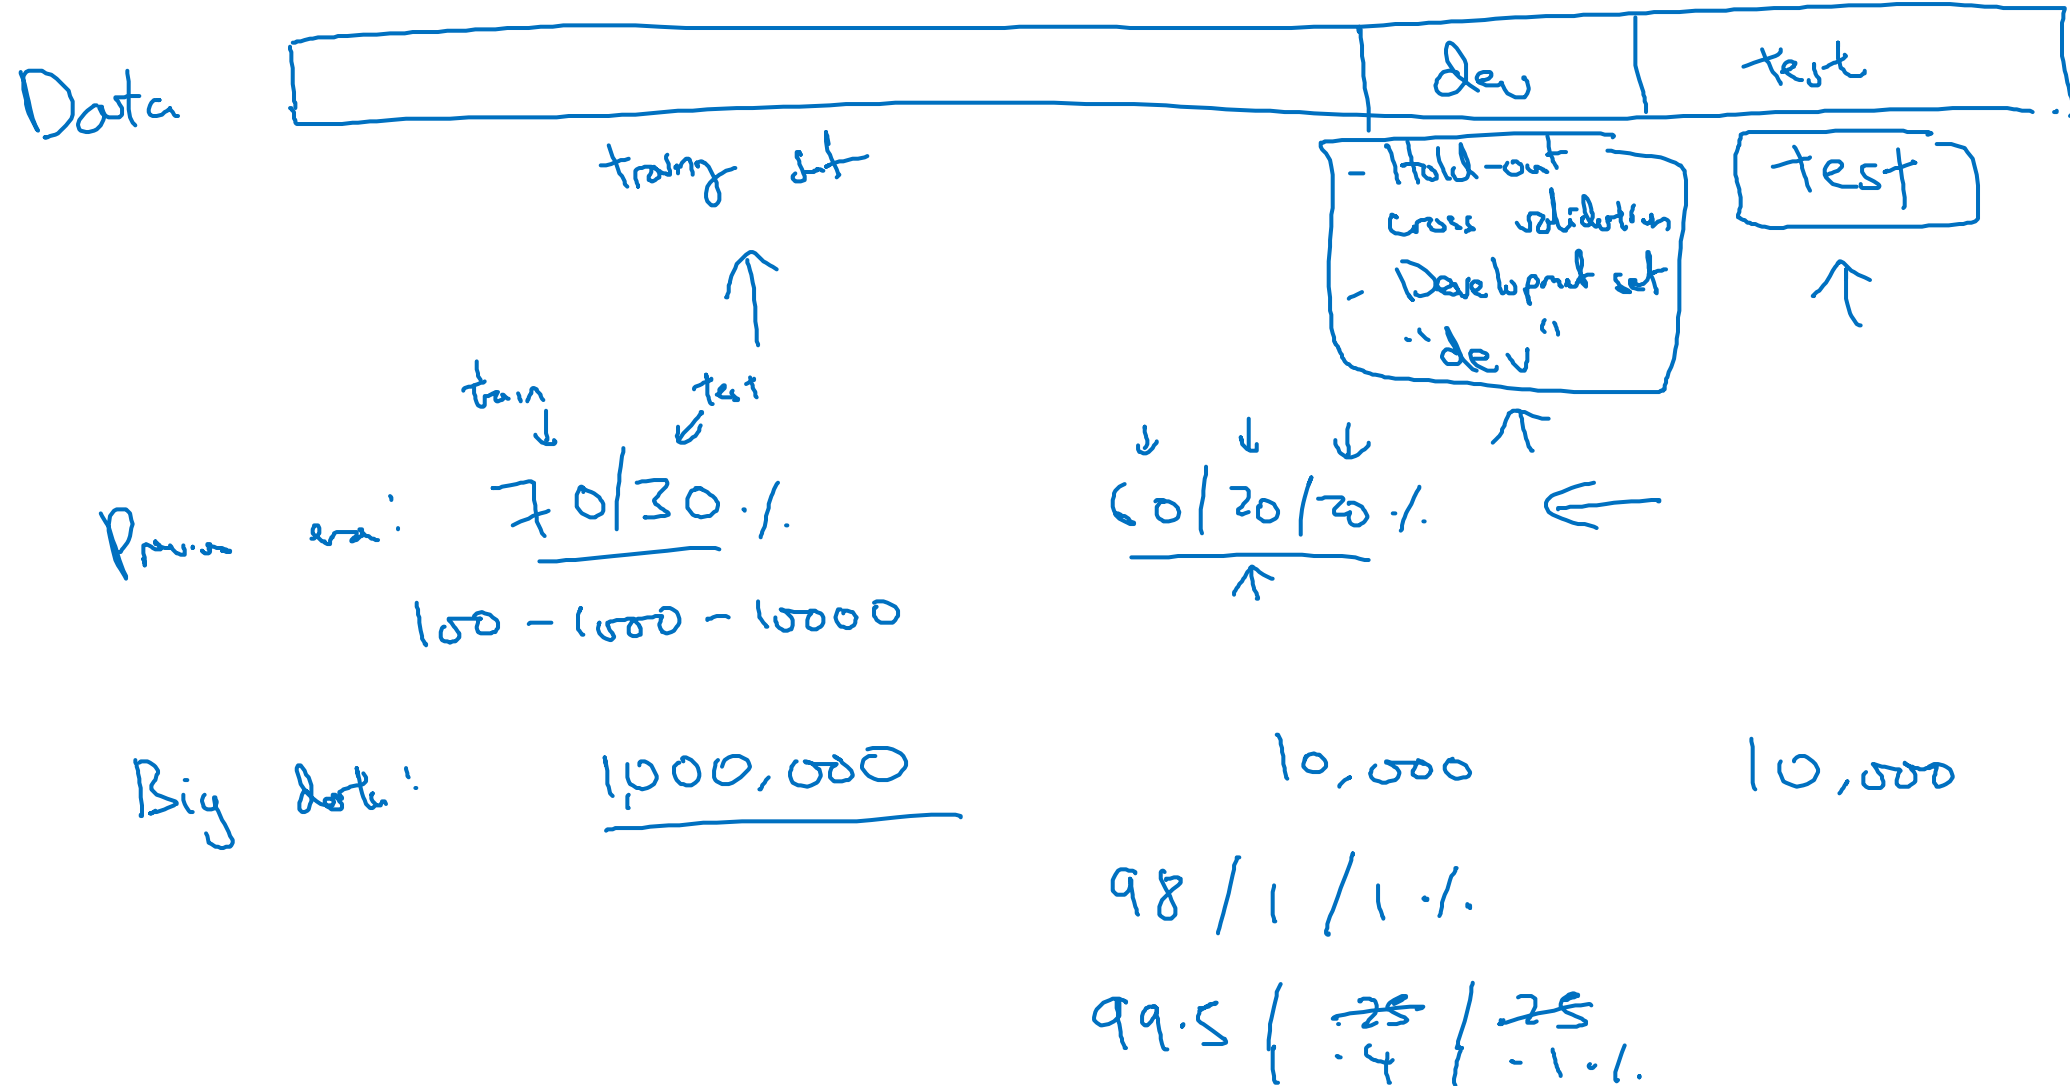 Data
dev
test
training set
- Hold-out
cross validation
- Development set
"dev"
test
train
test
Previous era:
70/30 %
60/20/20 %
100 - 1000 - 10000
Big data:
1,000,000
10,000
10,000
98 / 1 / 1 %
99.5 / .25 / .25
.4 / .1 %